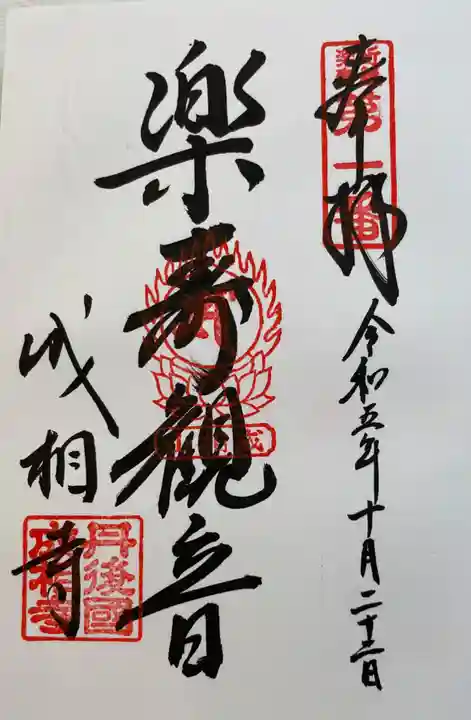 奉拝
第一番
令和五年十月二十二日
楽寿観音
成相寺
丹後國
成相寺